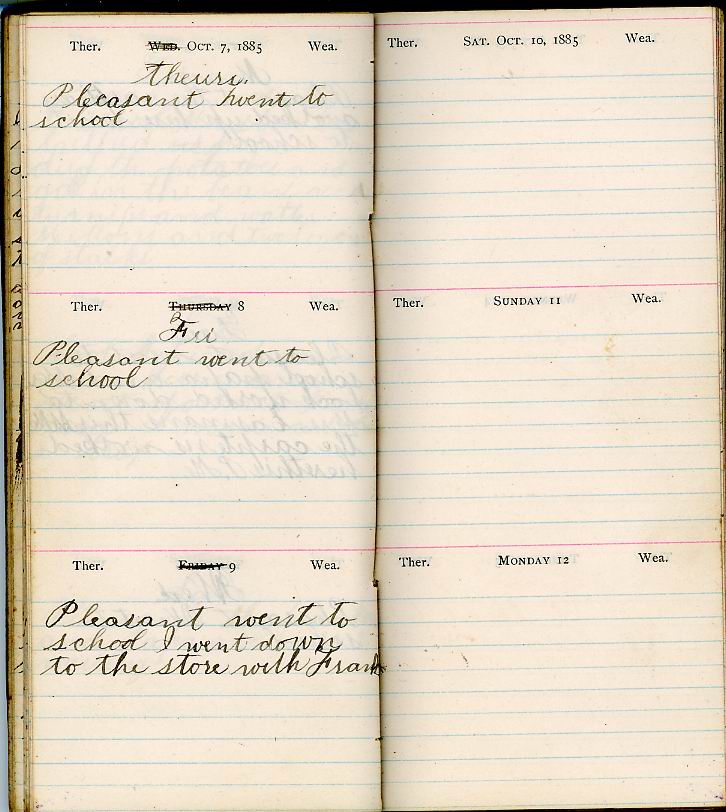 Ther. Wed. Oct. 7, 1885 Wea.
theurs.
Pleasant went to
school
Ther. Thursday 8 Wea.
Fri
Pleasant went to
school
Ther. Friday 9 Wea.
Pleasant went to
school I went down
to the store with Frank
Ther. Sat. Oct. 10, 1885 Wea.
Ther. Sunday 11 Wea.
Ther. Monday 12 Wea.